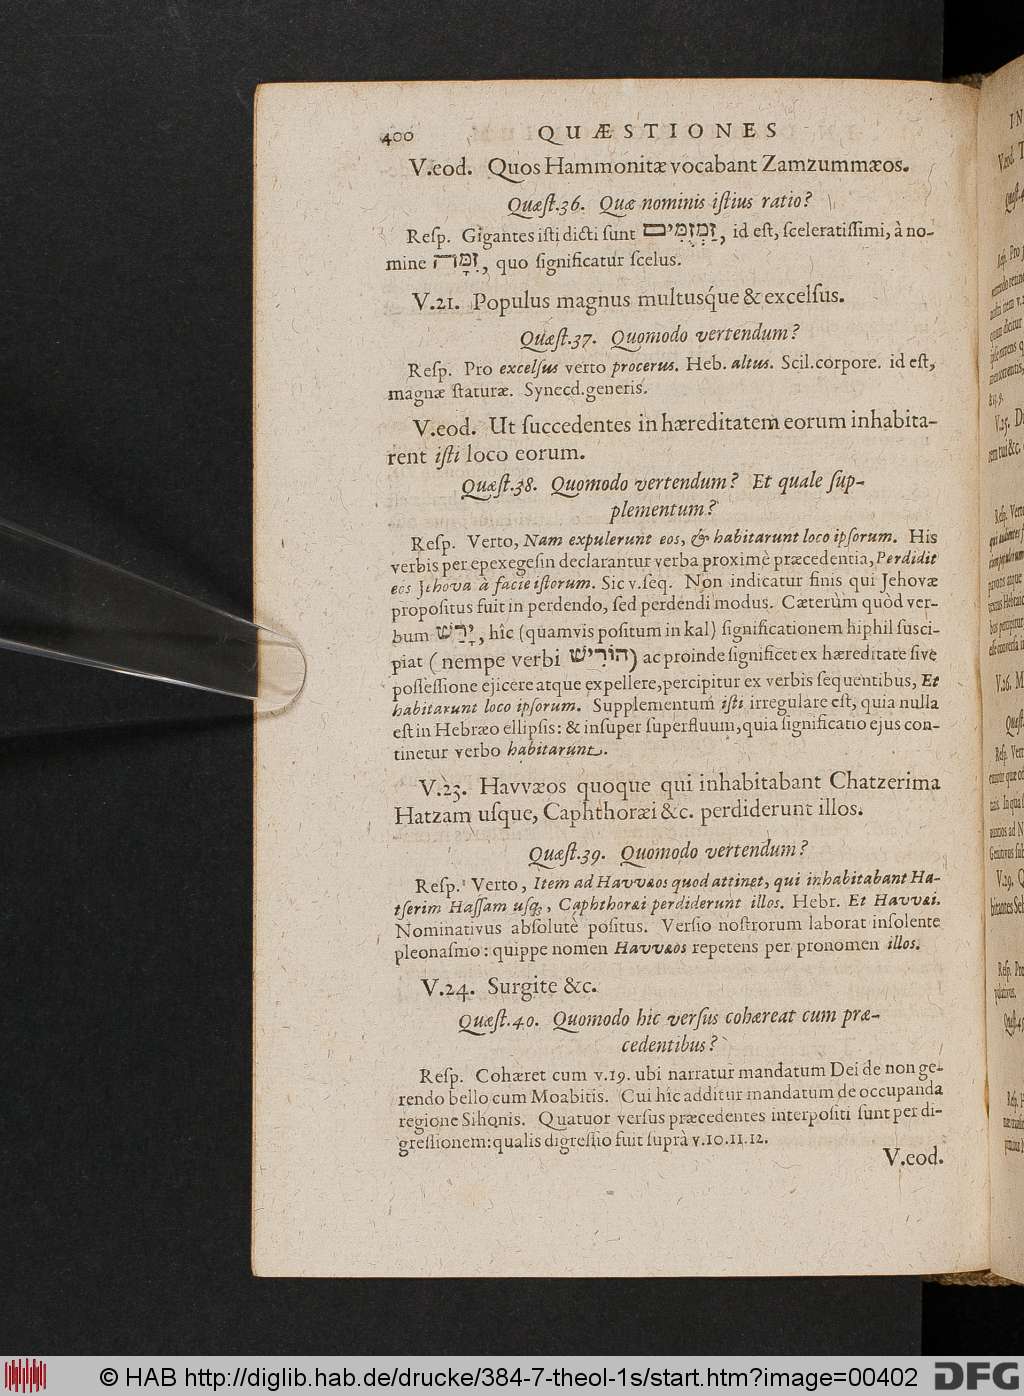 400 QUÆSTIONES
V.eod. Quos Hammonitæ vocabant Zamzummæos.
Quæſt.36. Quæ nominis iſtius ratio?
Reſp. Gigantes iſti dicti ſunt זַמְזֻמִּים, id eſt, ſceleratiſſimi, à no-
mine זִמָּה, quo ſignificatur ſcelus.
V.21. Populus magnus multusq́ue & excelſus.
Quæſt.37. Quomodo vertendum?
Reſp. Pro excelſus verto procerus. Heb. altus. Scil.corpore. id eſt,
magnæ ſtaturæ. Synecd.generis.
V.eod. Ut ſuccedentes in hæreditatem eorum inhabita-
rent iſti loco eorum.
Quæſt.38. Quomodo vertendum? Et quale ſup-
plementum?
Reſp. Verto, Nam expulerunt eos, & habitarunt loco ipſorum. His
verbis per epexegeſin declarantur verba proximè præcedentia, Perdidit
eos Jehova à facie iſtorum. Sic v.ſeq. Non indicatur finis qui Jehovæ
propoſitus fuit in perdendo, ſed perdendi modus. Cæterùm quòd ver-
bum יָרַשׁ, hîc (quamvis poſitum in kal) ſignificationem hiphil ſusci-
piat (nempe verbi הוֹרִישׁ) ac proinde ſignificet ex hæreditate ſive
poſſeſſione ejicere atque expellere, percipitur ex verbis ſequentibus, Et
habitarunt loco ipſorum. Supplementum iſti irregulare eſt, quia nulla
eſt in Hebræo ellipſis: & inſuper ſuperfluum, quia ſignificatio ejus con-
tinetur verbo habitarunt.
V.23. Havvæos quoque qui inhabitabant Chatzerima
Hatzam uſque, Caphthoræi &c. perdiderunt illos.
Quæſt.39. Quomodo vertendum?
Reſp. Verto, Item ad Havvæos quod attinet, qui inhabitabant Ha-
tſerim Haſſam uſq;, Caphthoræi perdiderunt illos. Hebr. Et Havvæi.
Nominativus abſolutè poſitus. Verſio noſtrorum laborat inſolente
pleonaſmo: quippe nomen Havvæos repetens per pronomen illos.
V.24. Surgite &c.
Quæſt.40. Quomodo hic verſus cohæreat cum præ-
cedentibus?
Reſp. Cohæret cum v.19. ubi narratur mandatum Dei de non ge-
rendo bello cum Moabitis. Cui hîc additur mandatum de occupanda
regione Sihonis. Quatuor verſus præcedentes interpoſiti ſunt per di-
greſſionem: qualis digreſſio fuit ſuprà v.10.11.12.
V.eod.
© HAB http://diglib.hab.de/drucke/384-7-theol-1s/start.htm?image=00402
DFG